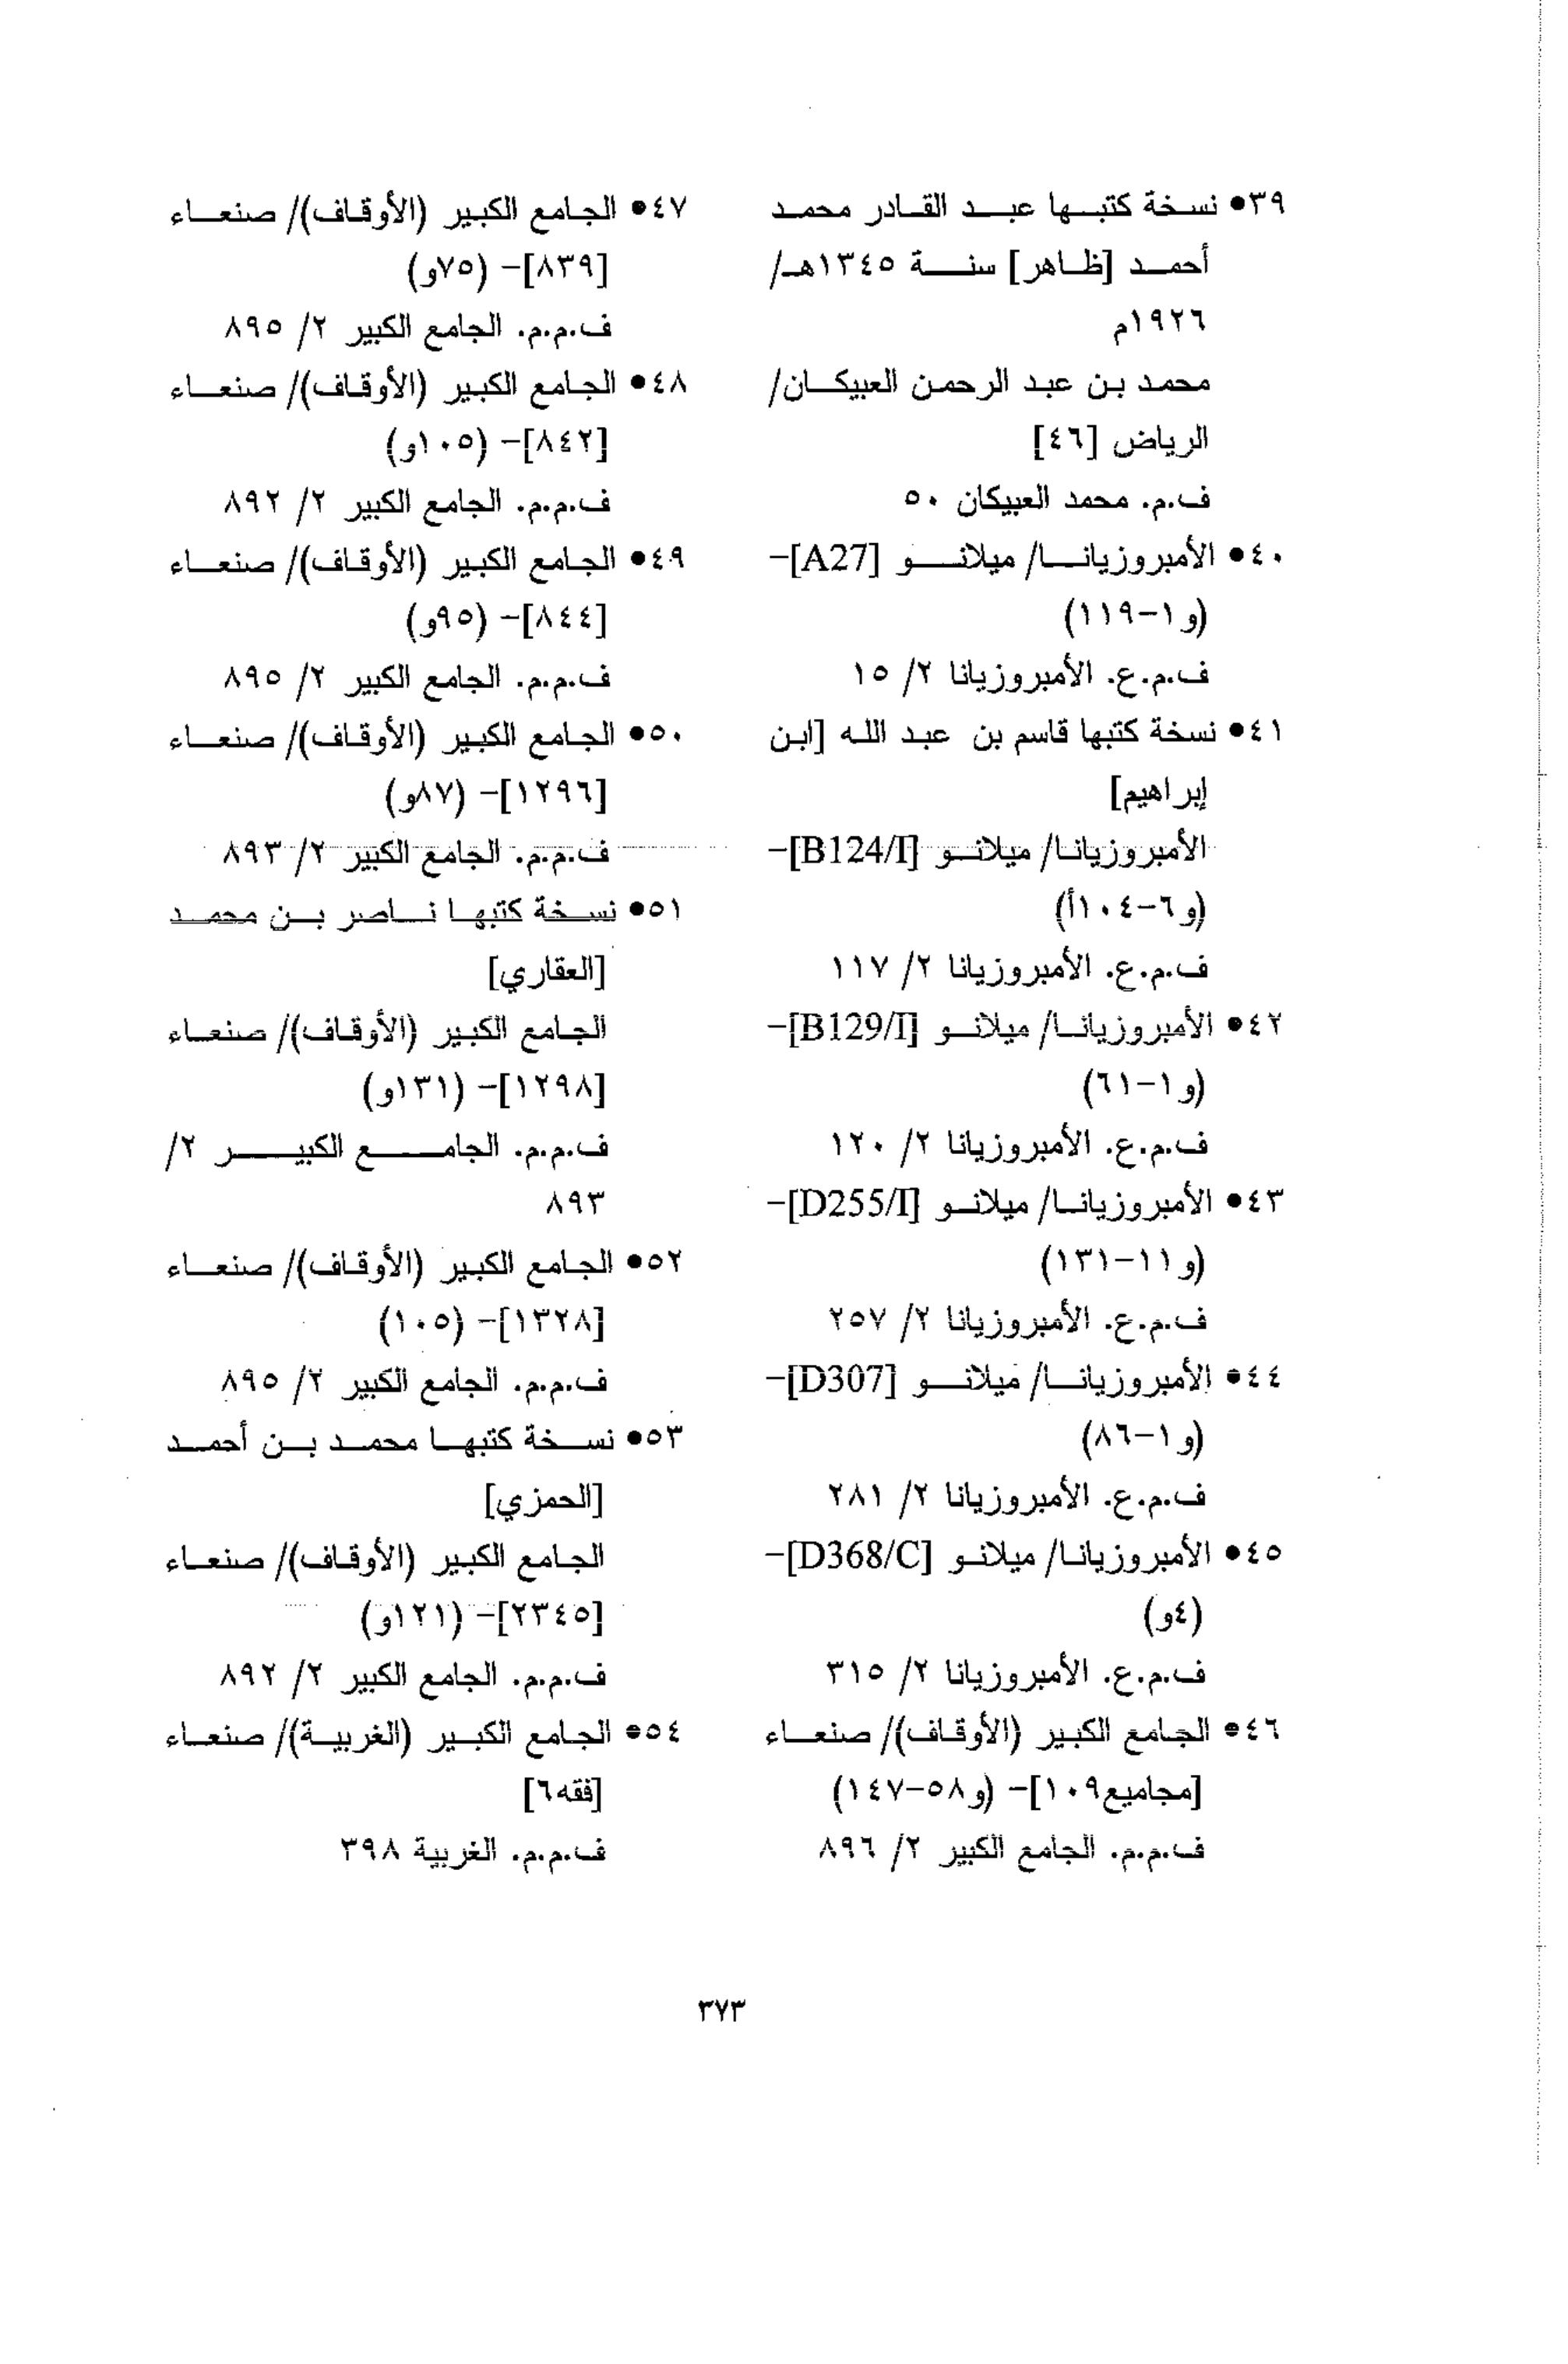 ٣٩• نسخة كتبها عبد القادر محمد
أحمد [ظاهر] سنة ١٣٤٥هـ/
١٩٢٦م
محمد بن عبد الرحمن العبيكان/
الرياض [٤٦]
ف.م. محمد العبيكان ٥٠
٤٠• الأمبروزيانا/ ميلانو [A27]-
(و١-١١٩)
ف.م.ع. الأمبروزيانا ٢/ ١٥
٤١• نسخة كتبها قاسم بن عبد الله [ابن
إبراهيم]
الأمبروزيانا/ ميلانو [B124/I]-
(و٦-١٠٤أ)
ف.م.ع. الأمبروزيانا ٢/ ١١٧
٤٢• الأمبروزيانا/ ميلانو [B129/I]-
(و١-٦١)
ف.م.ع. الأمبروزيانا ٢/ ١٢٠
٤٣• الأمبروزيانا/ ميلانو [D255/I]-
(و١١-١٣١)
ف.م.ع. الأمبروزيانا ٢/ ٢٥٧
٤٤• الأمبروزيانا/ ميلانو [D307]-
(و١-٨٦)
ف.م.ع. الأمبروزيانا ٢/ ٢٨١
٤٥• الأمبروزيانا/ ميلانو [D368/C]-
(٤و)
ف.م.ع. الأمبروزيانا ٢/ ٣١٥
٤٦• الجامع الكبير (الأوقاف)/ صنعاء
[مجاميع١٠٩]- (و٥٨-١٤٧)
ف.م.م. الجامع الكبير ٢/ ٨٩٦
٤٧• الجامع الكبير (الأوقاف)/ صنعاء
[٨٣٩]- (٧٥و)
ف.م.م. الجامع الكبير ٢/ ٨٩٥
٤٨• الجامع الكبير (الأوقاف)/ صنعاء
[٨٤٢]- (١٠٥و)
ف.م.م. الجامع الكبير ٢/ ٨٩٢
٤٩• الجامع الكبير (الأوقاف)/ صنعاء
[٨٤٤]- (٩٥و)
ف.م.م. الجامع الكبير ٢/ ٨٩٥
٥٠• الجامع الكبير (الأوقاف)/ صنعاء
[١٢٩٦]- (٨٧و)
ف.م.م. الجامع الكبير ٢/ ٨٩٣
٥١• نسخة كتبها ناصر بن محمد
[العقاري]
الجامع الكبير (الأوقاف)/ صنعاء
[١٢٩٨]- (١٣١و)
ف.م.م. الجامع الكبير ٢/
٨٩٣
٥٢• الجامع الكبير (الأوقاف)/ صنعاء
[١٣٢٨]- (١٠٥)
ف.م.م. الجامع الكبير ٢/ ٨٩٥
٥٣• نسخة كتبها محمد بن أحمد
[الحمزي]
الجامع الكبير (الأوقاف)/ صنعاء
[٢٣٤٥]- (١٢١و)
ف.م.م. الجامع الكبير ٢/ ٨٩٢
٥٤• الجامع الكبير (الغربية)/ صنعاء
[فقه٦]
ف.م.م. الغربية ٣٩٨
٣٧٣